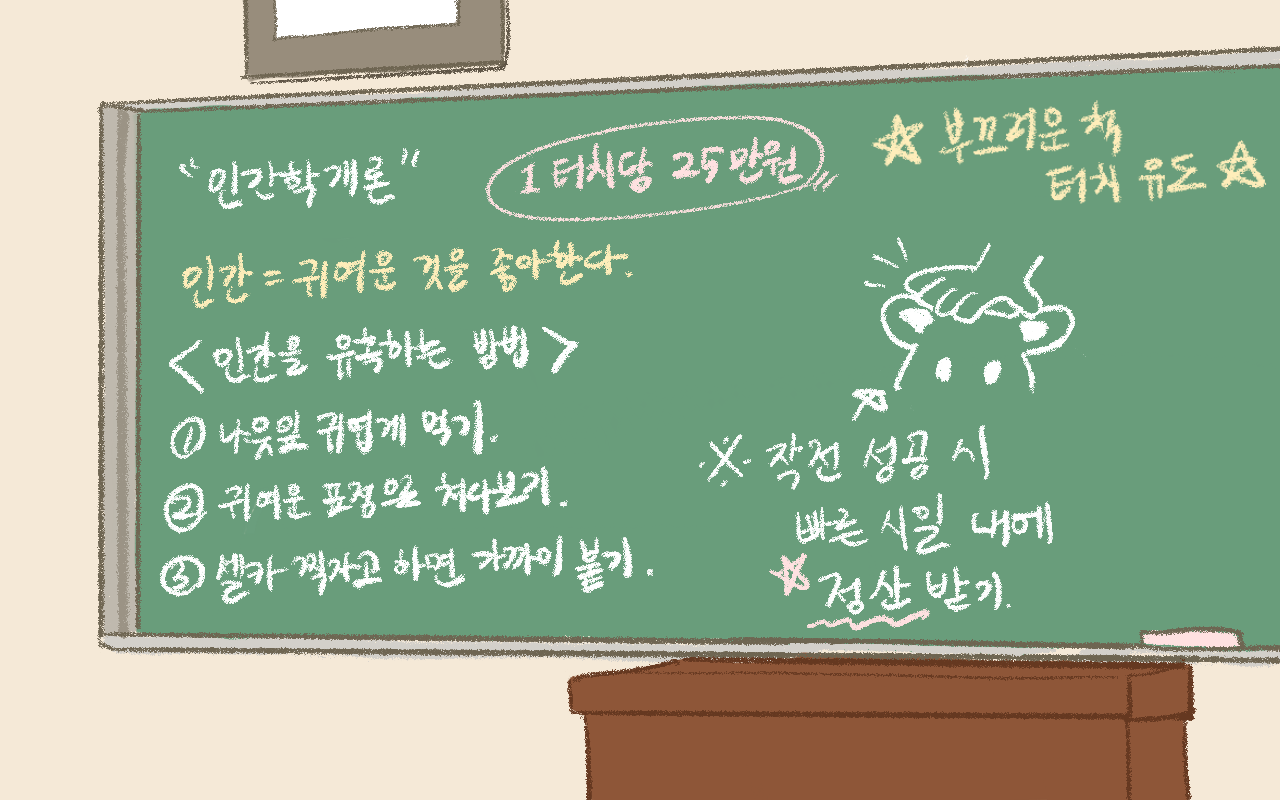 "인간학개론"
1 터치당 25만원
☆ 부끄러운 척
터치 유도 ☆
인간 = 귀여운 것을 좋아한다.
<인간을 유혹하는 방법>
① 나뭇잎 귀엽게 먹기.
② 귀여운 표정으로 쳐다보기.
③ 셀카 찍자고 하면 가까이 붙기.
※ 작전 성공 시
빠른 시일 내에
☆ 정산 받기.